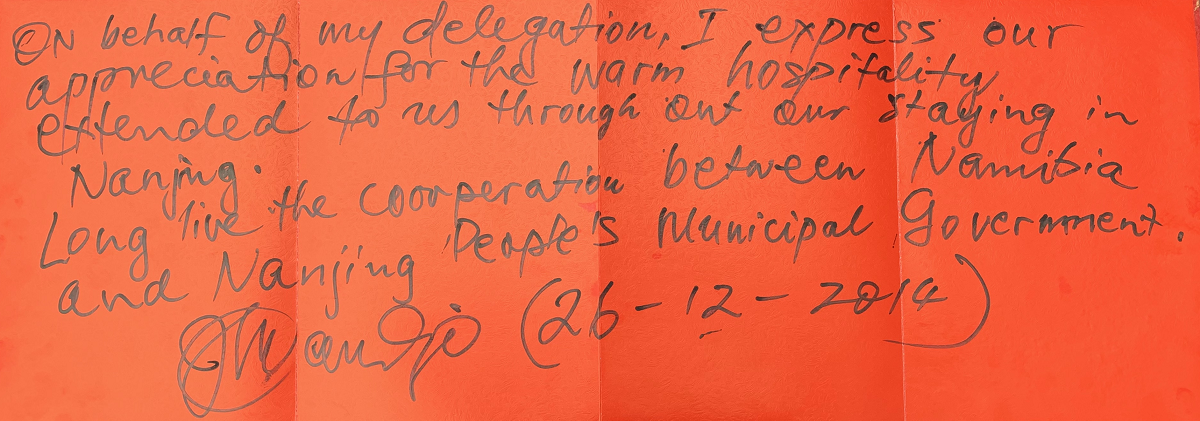 On behalf of my delegation, I express our
appreciation for the warm hospitality
extended to us through out our staying in
Nanjing.
Long live the coorperation between Namibia
and Nanjing People's Municipal Government.
(26-12-2014)